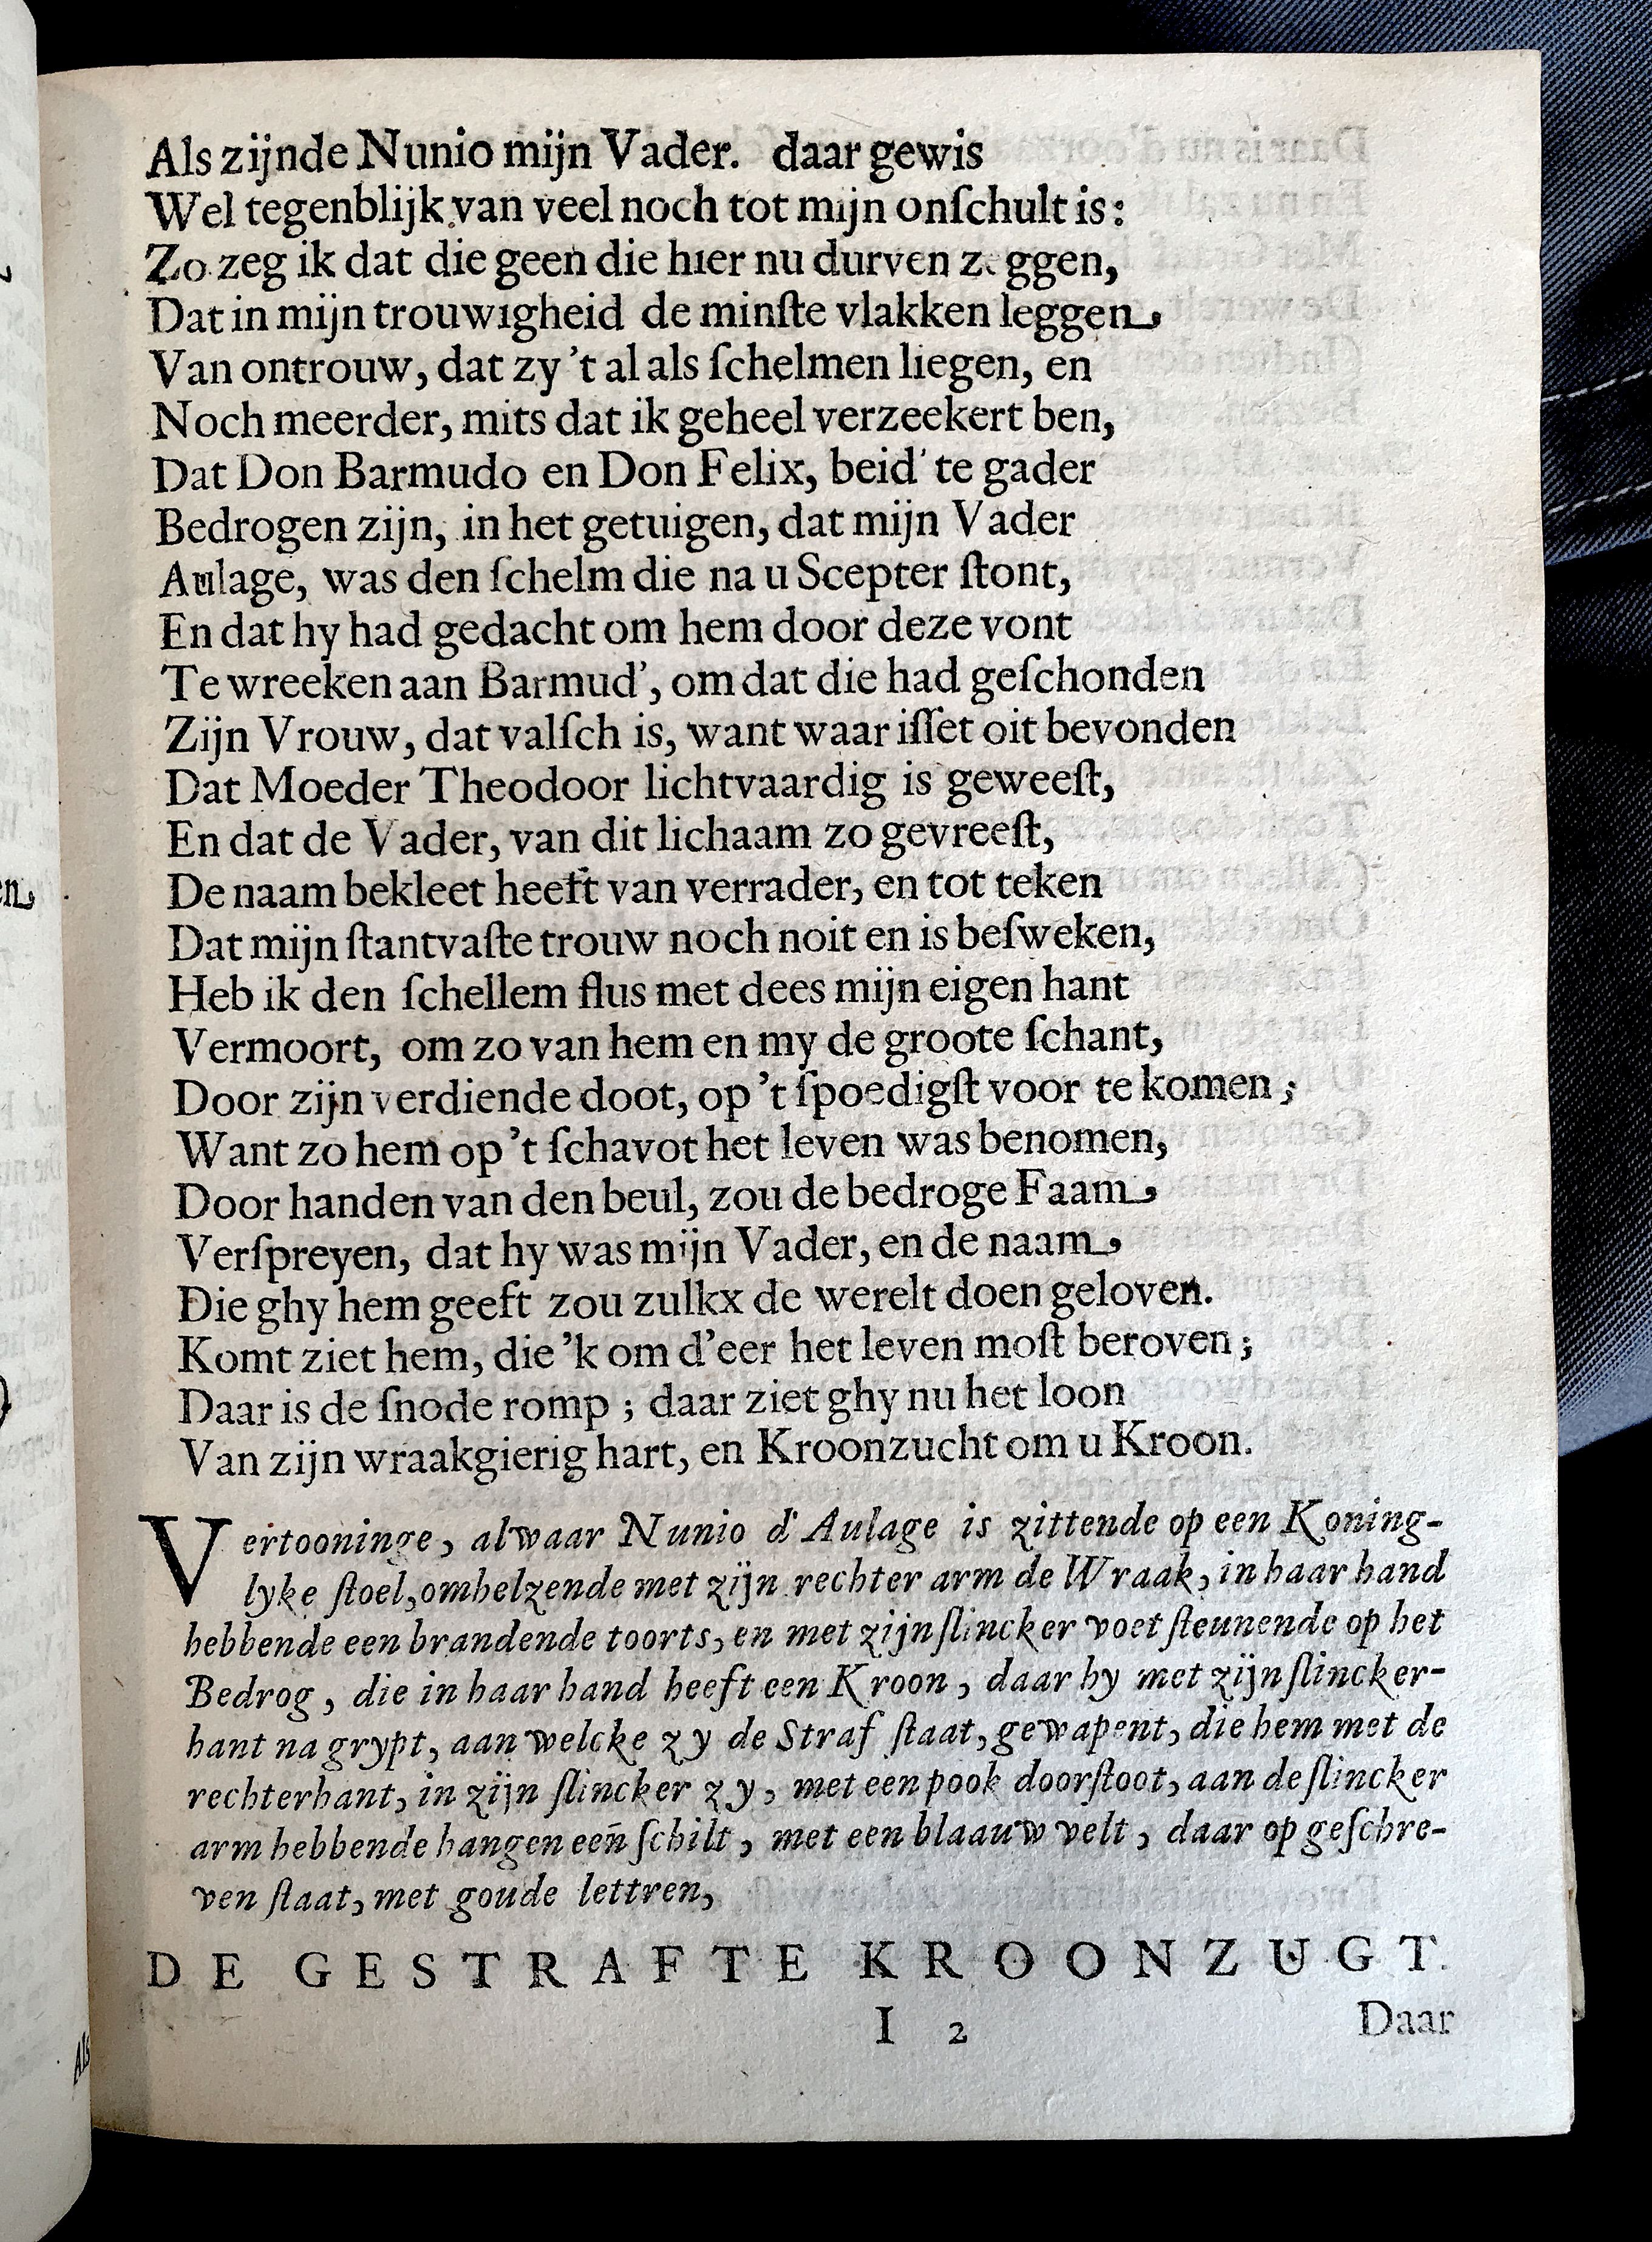 Als zijnde Nunio mijn Vader. daar gewis
Wel tegenblijk van veel noch tot mijn onſchult is:
Zo zeg ik dat die geen die hier nu durven z ggen,
Dat in mijn trouwigheid de minſte vlakken leggen,
Van ontrouw, dat zy 't al als ſchelmen liegen, en
Noch meerder, mits dat ik geheel verzeekert ben,
Dat Don Barmudo en Don Felix, beid' te gader
Bedrogen zijn, in het getuigen, dat mijn Vader
Aulage, was den ſchelm die na u Scepter ſtont,
En dat hy had gedacht om hem door deze vont
Te wreeken aan Barmud', om dat die had geſchonden
Zijn Vrouw, dat valſch is, want waar iſſet oit bevonden
Dat Moeder Theodoor lichtvaardig is geweeſt,
En dat de Vader, van dit lichaam zo gevreeſt,
De naam bekleet heeft van verrader, en tot teken
Dat mijn ſtantvaſte trouw noch noit en is beſweken,
Heb ik den ſchellem flus met dees mijn eigen hant
Vermoort, om zo van hem en my de groote ſchant,
Door zijn verdiende doot, op 't ſpoedigſt voor te komen;
Want zo hem op 't ſchavot het leven was benomen,
Door handen van den beul, zou de bedroge Faam,
Verſpreyen, dat hy was mijn Vader, en de naam,
Die ghy hem geeft zou zulkx de werelt doen geloven.
Komt ziet hem, die 'k om d'eer het leven moſt beroven;
Daar is de ſnode romp; daar ziet ghy nu het loon
Van zijn wraakgierig hart, en Kroonzucht om u Kroon.
Vertooninge, alwaar Nunio d' Aulage is zittende op een Koning-
lyke ſtoel, omhelzende met zijn rechter arm de Wraak, in haar hand
hebbende een brandende toorts, en met zijn ſlincker voet ſteunende op het
Bedrog, die in haar hand heeft een Kroon, daar hy met zijn ſlincker-
hant na grypt, aan welcke zy de Straf ſtaat, gewapent, die hem met de
rechterhant, in zijn ſlincker zy, met een pook doorſtoot, aan de ſlincker
arm hebbende hangen een ſchilt, met een blaauw velt, daar op geſchre-
ven ſtaat, met goude lettren,
DE GESTRAFTE KROONZUGT.
I 2 Daar